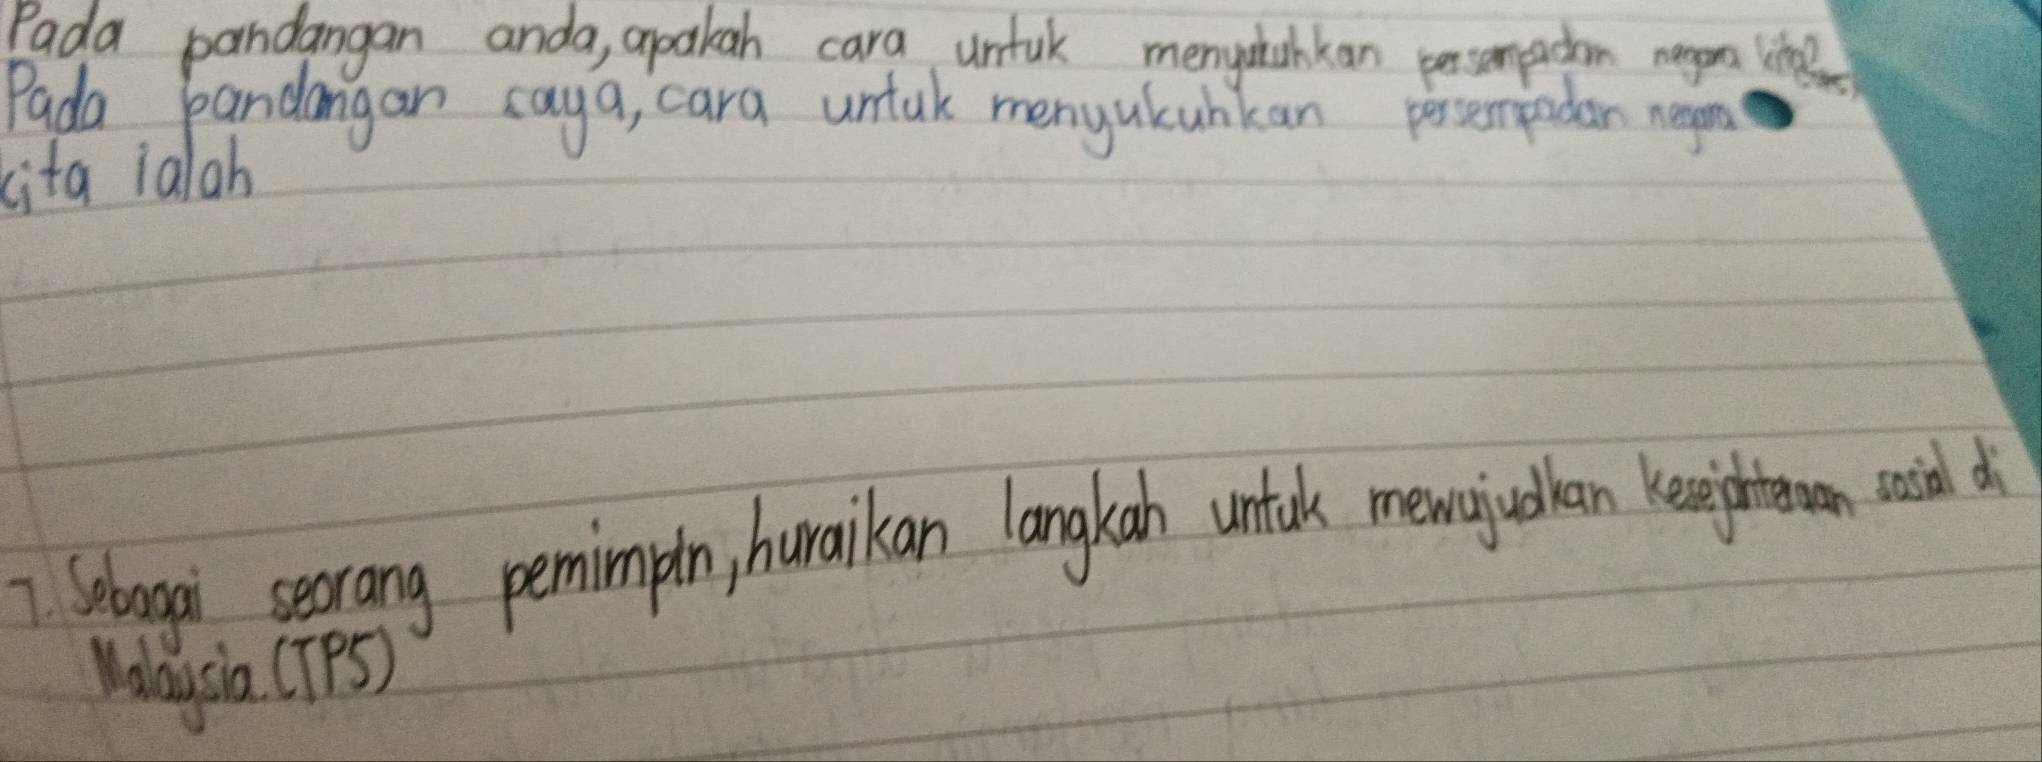 Pada pandangan anda, apakah cara untuk menyukuhkan persempadan negara kita?
Pada pandangan saya, cara untuk menyukuhkan persempadan negara
kita ialah
7. Sebagai seorang pemimpin, huraikan langkah untuk mewujudkan kesejahteraan sosial di
Malaysia. (TP5)